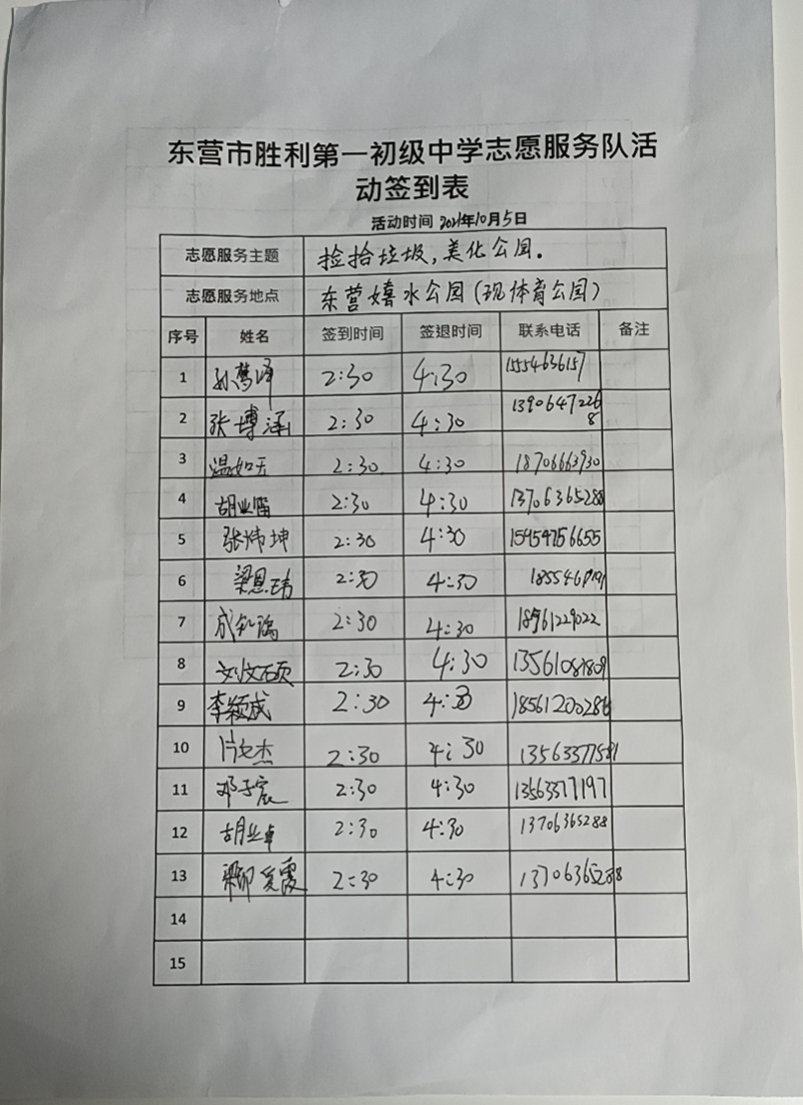 东营市胜利第一初级中学志愿服务队活
动签到表
活动时间 2021年10月5日
志愿服务主题 捡拾垃圾,美化公园.
志愿服务地点 东营嬉水公园(现体育公园)
序号 姓名 签到时间 签退时间 联系电话 备注
1 2:30 4:30 15554636157
2 张博涵 2:30 4:30 13906472268
3 温如天 2:30 4:30 18706663930
4 2:30 4:30 13706365288
5 张炜坤 2:30 4:30 15954756655
6 梁恩玮 2:30 4:30
7 2:30 4:30 18961229022
8 刘文硕 2:30 4:30
9 李颖成 2:30 4:30
10 2:30 4:30
11 邓子宸 2:30 4:30 13563377197
12 胡业卓 2:30 4:30 13706365288
13 2:30 4:30 13706365288
14
15